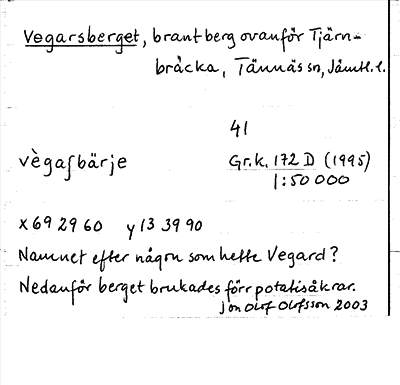 Vegarsberget, brant berg ovanför Tjärn-
bråcka, Tännäs sn, Jämtl. l.
41
vègaʃbärje Gr.k. 172 D (1995)
1:50 000
x 69 29 60 y 13 39 90
Namnet efter någon som hette Vegard?
Nedanför berget brukades förr potatisåkrar.
Jon Olof Olofsson 2003